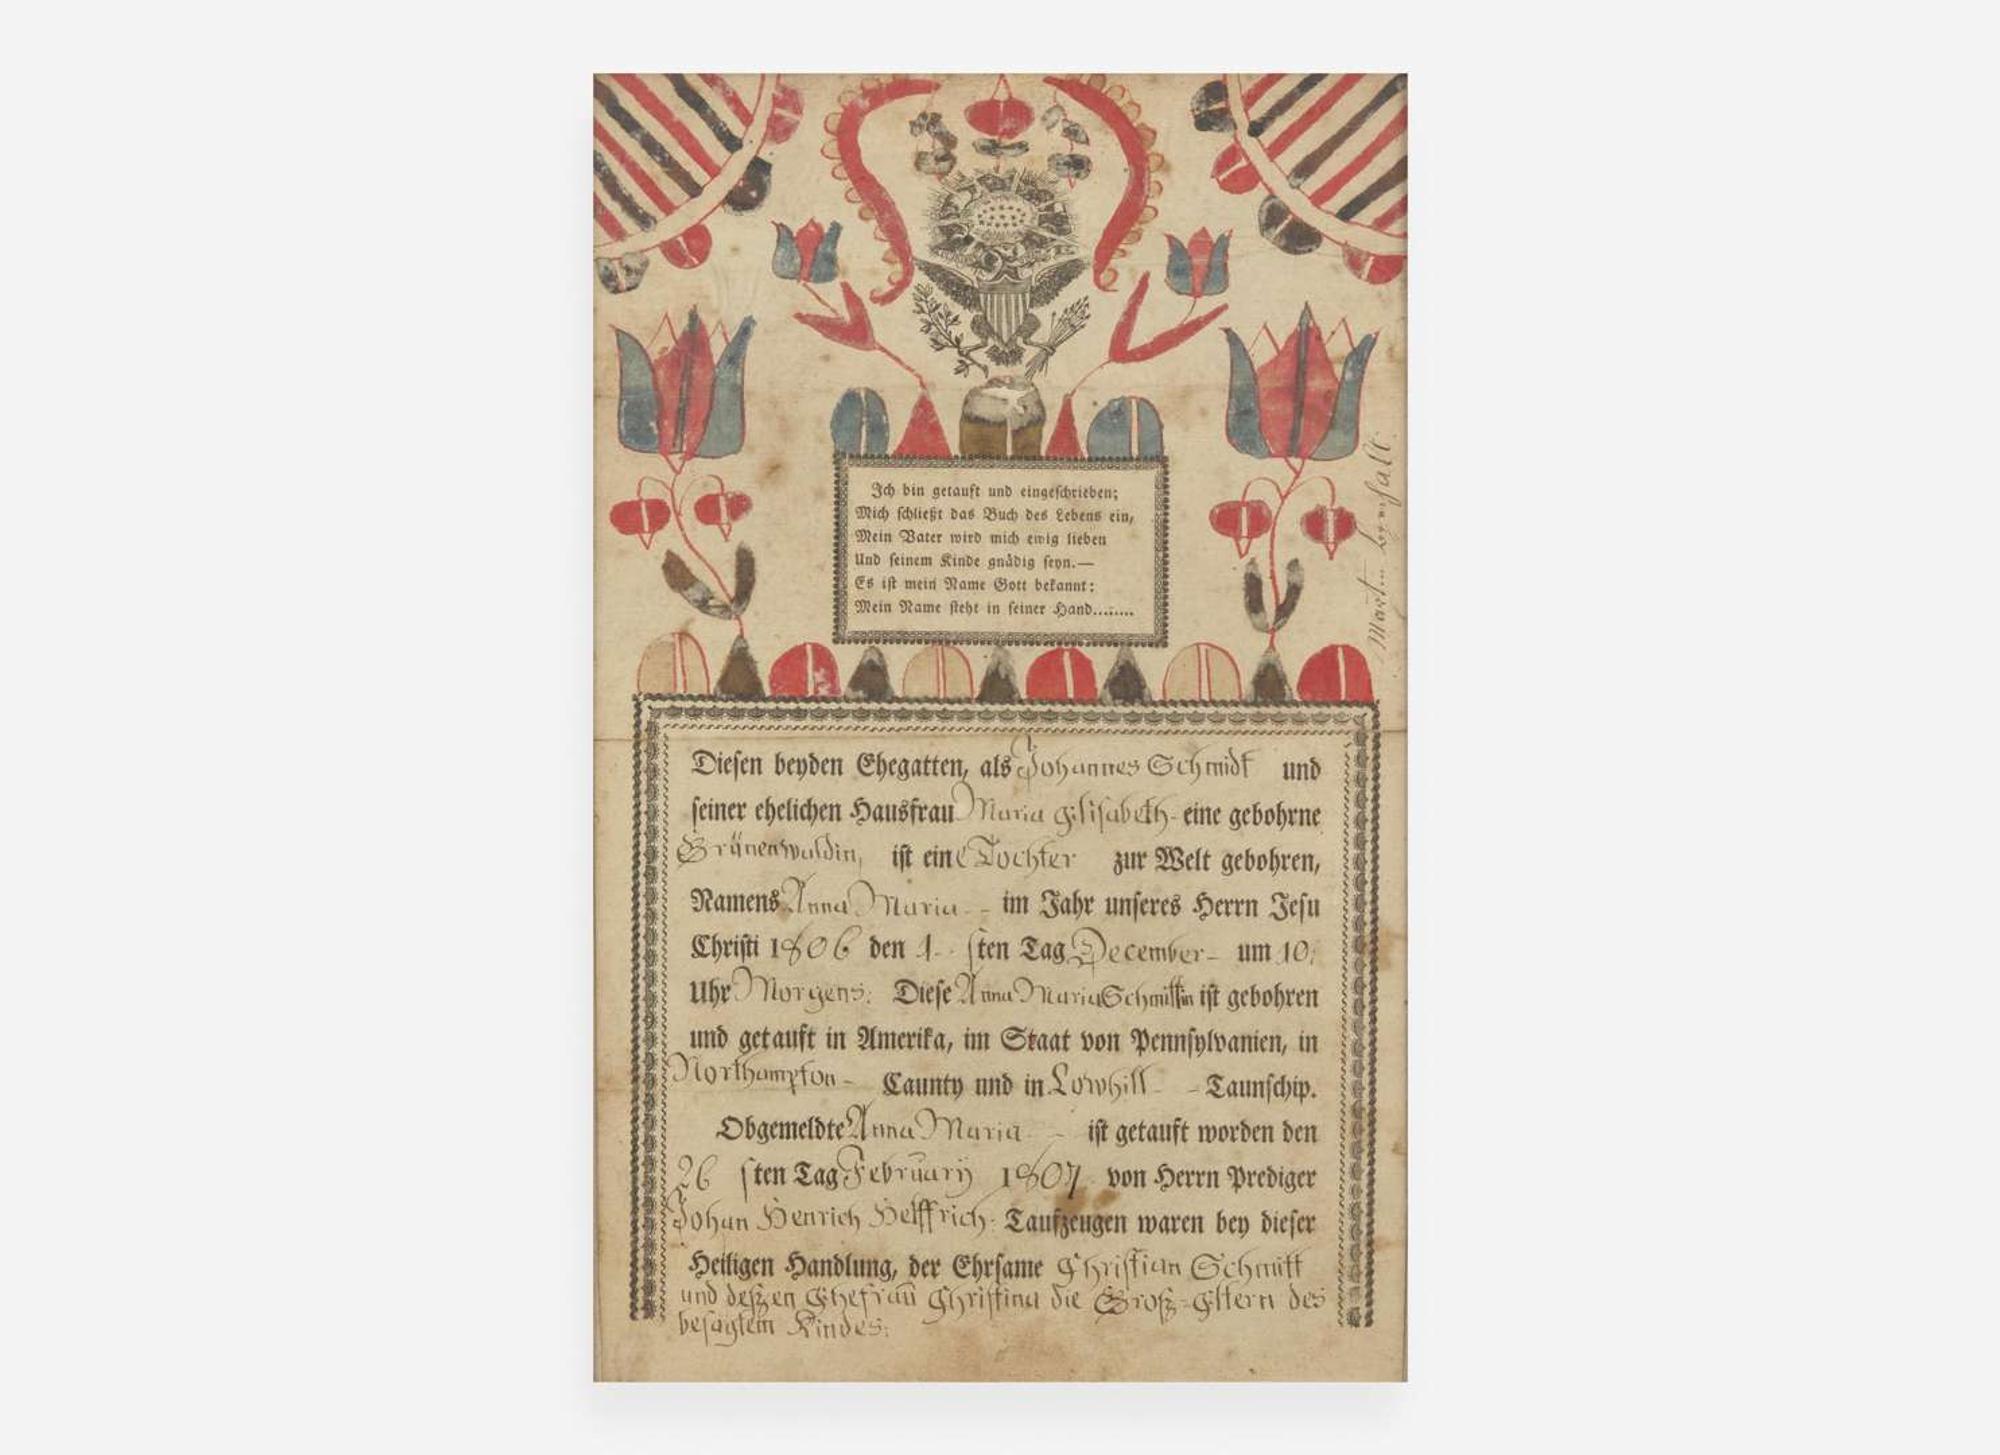 Ich bin getauft und eingeschrieben;
Mich schließt das Buch des Lebens ein,
Mein Vater wird mich ewig lieben
Und seinem Kinde gnädig seyn.—
Es ist mein Name Gott bekannt:
Mein Name steht in seiner Hand........
Martin
Diesen beyden Ehegatten, als Johannes Schmidt und
seiner ehelichen Hausfrau Maria Elisabeth - eine gebohrne
Grünenwaldin, ist eine Tochter zur Welt gebohren,
Namens Anna Maria - - im Jahr unseres Herrn Jesu
Christi 1806 den 4 - sten Tag December - um 10:
Uhr Morgens: Diese Anna Maria Schmittin ist gebohren
und getauft in Amerika, im Staat von Pennsylvanien, in
Northampton - Caunty und in Lowhill - - Taunschip.
Obgemeldte Anna Maria - ist getauft worden den
26 sten Tag February 1807 von Herrn Prediger
Johan Henrich Helffrich: Taufzeugen waren bey dieser
Heiligen Handlung, der Ehrsame Christian Schmitt
und deßen Ehefrau Christina die Groß-Eltern des
besagtem Kindes: